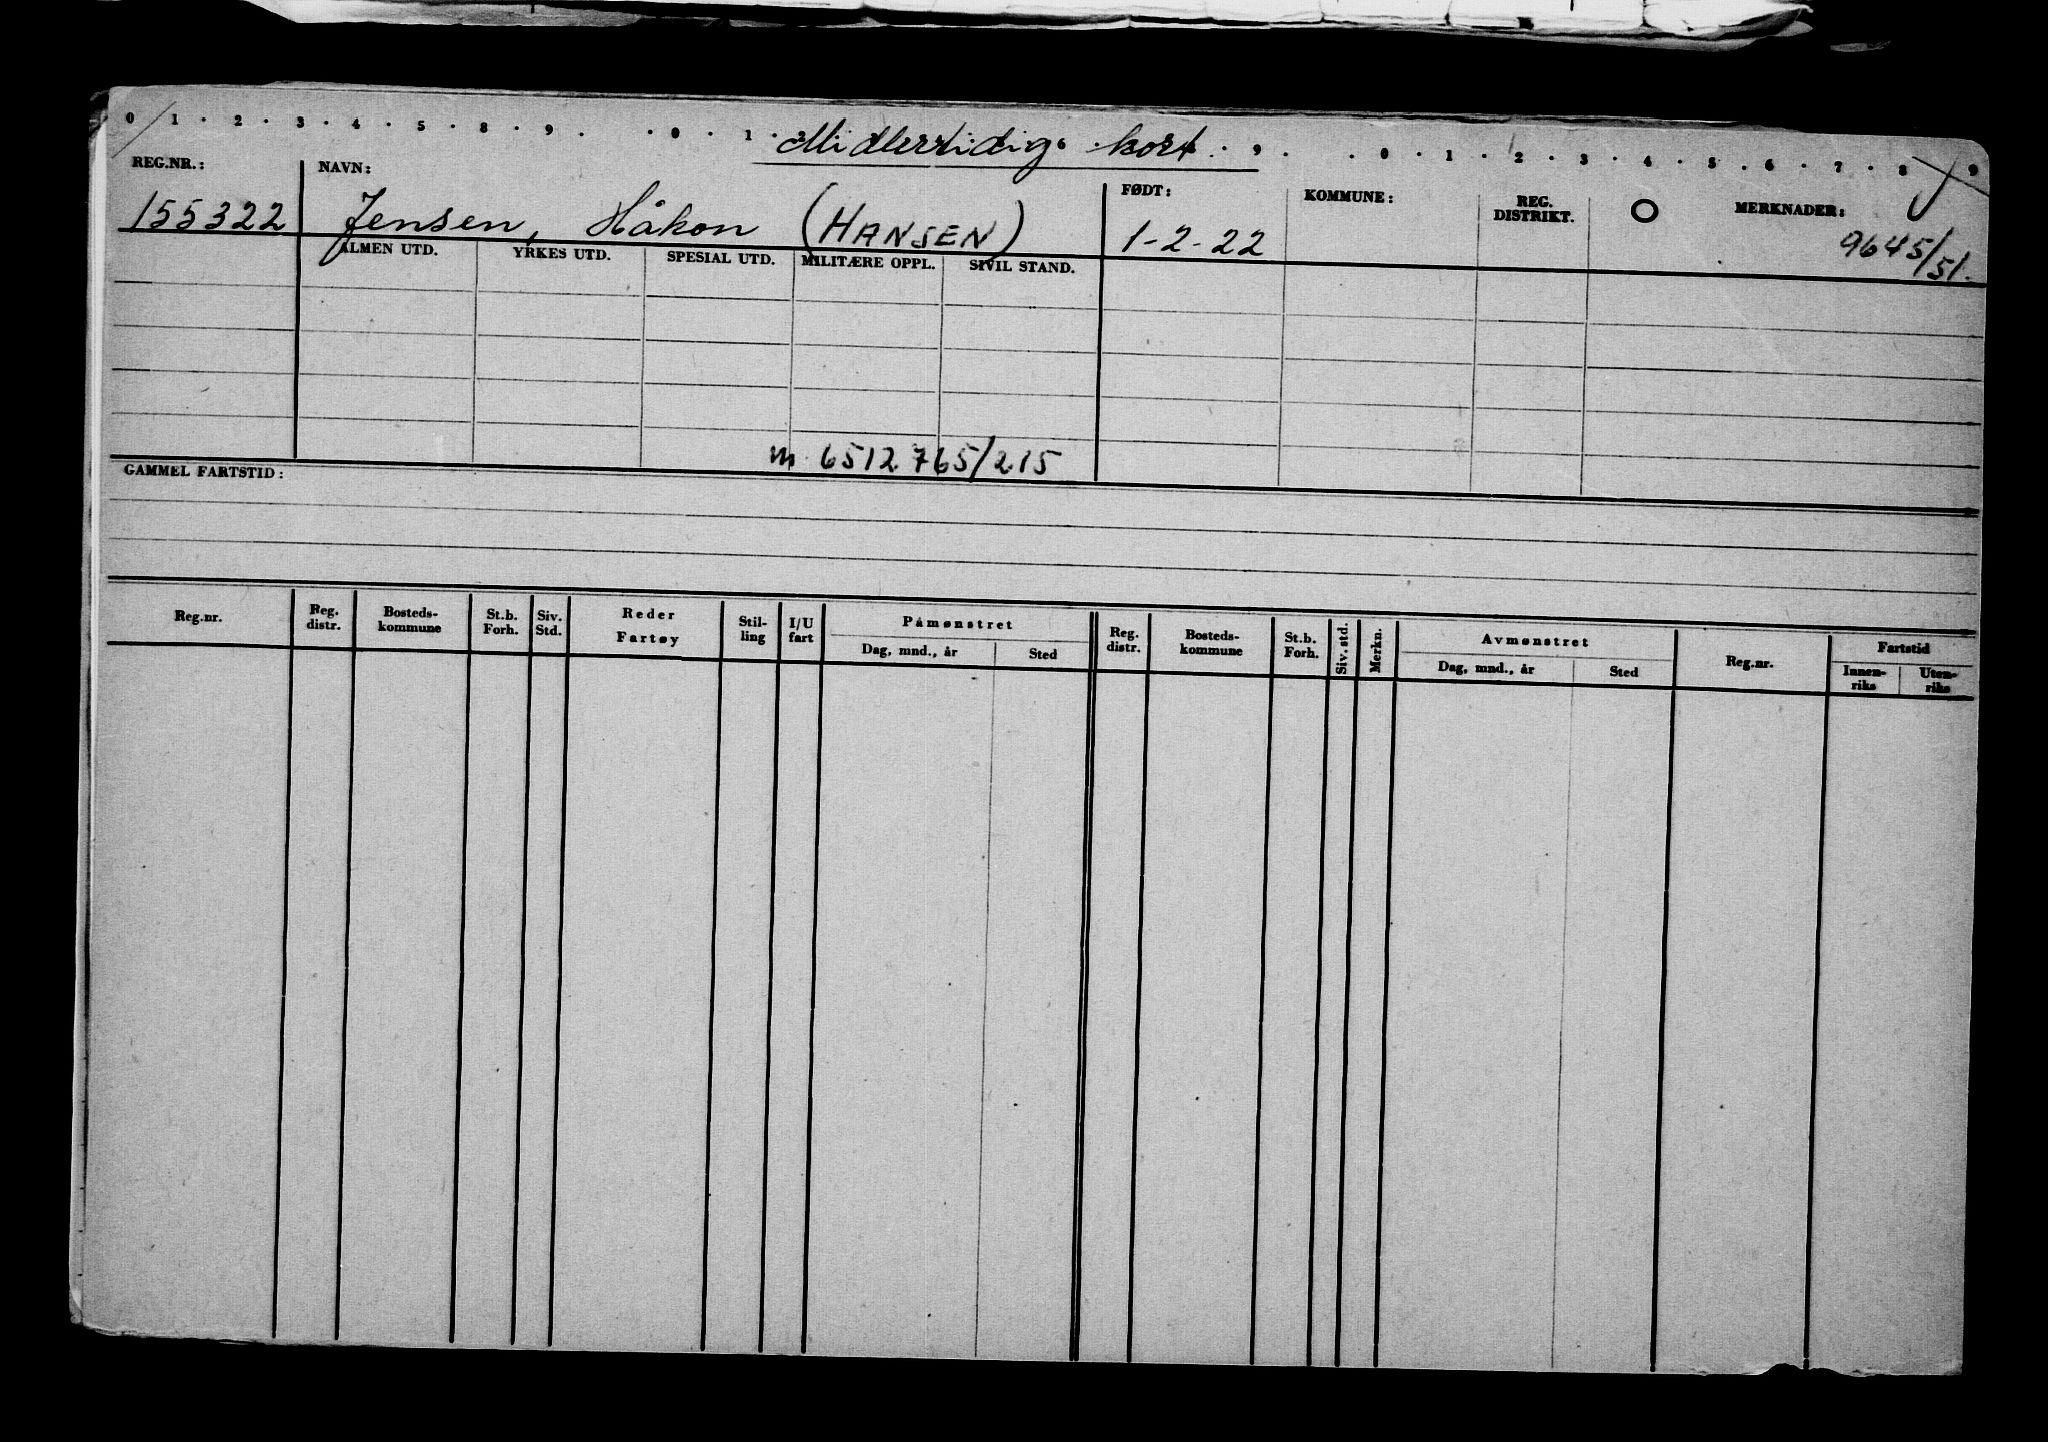 0 1 · 2 · 3 · 4 · 5 · 8 · 9 · · 0 · 1 · Midlertidig kort · 9 · · 0 · 1 · 2 · 3 · 4 · 5 · 6 · 7 · 8 · 9
REG.NR.: NAVN: FØDT: KOMMUNE: REG. DISTRIKT. O MERKNADER:
155322 Jensen, Håkon (HANSEN) 1-2-22 9645/51.
ALMEN UTD. YRKES UTD. SPESIAL UTD. MILITÆRE OPPL. SIVIL STAND.
m 6512765/215
GAMMEL FARTSTID:
Reg.nr. Reg. distr. Bosteds-kommune St.b. Forh. Siv. Std. Reder Fartøy Stil-ling I/U fart Påmønstret Reg. distr. Bosteds-kommune St.b. Forh. Siv. std. Merkn. Avmønstret Reg.nr. Fartstid
Dag, mnd., år Sted Dag, mnd., år Sted Innen-riks Uten-riks